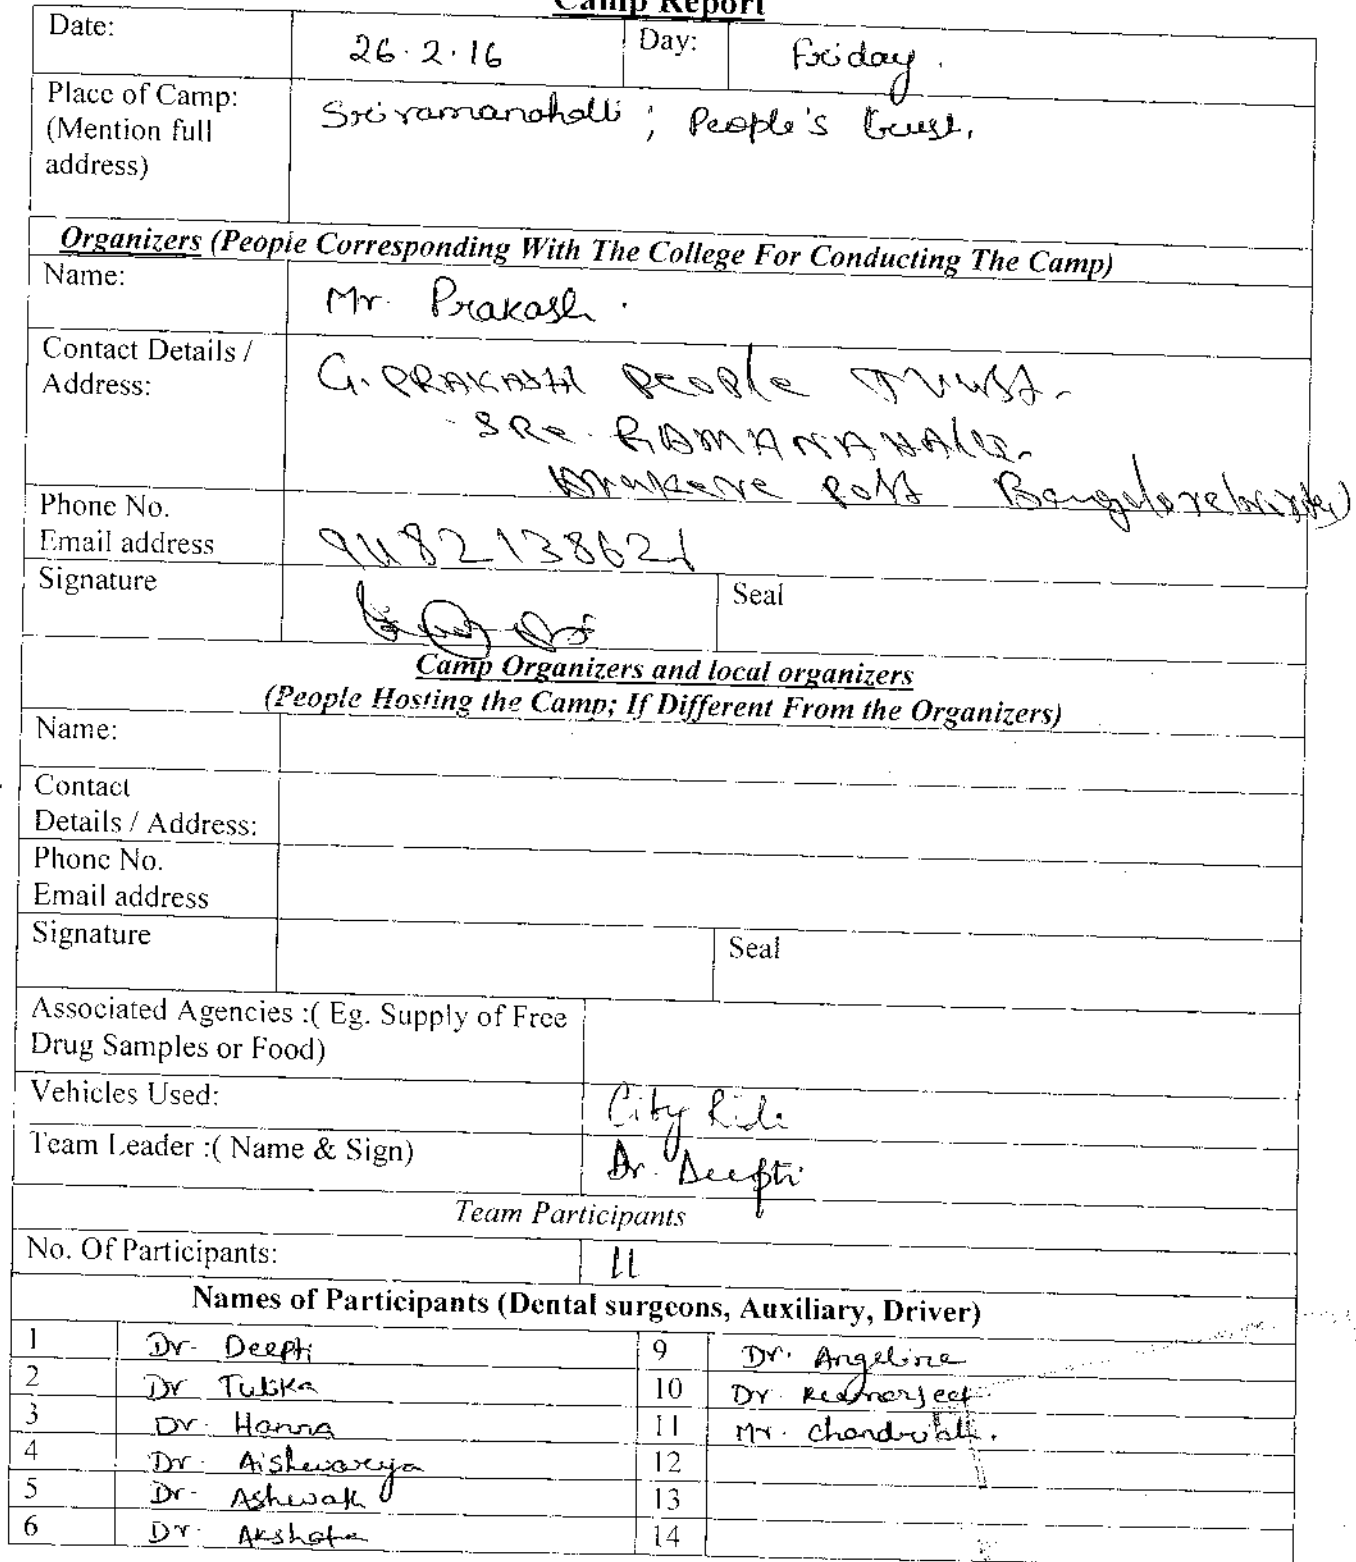 Camp Report
Date: 26.2.16 Day: Friday.
Place of Camp: Sriramanahalli ; People's trust.
(Mention full
address)
Organizers (People Corresponding With The College For Conducting The Camp)
Name: Mr. Prakash.
Contact Details / G. PRAKASH People Trust.
Address: SRe. RAMANAHALLI.
Post Bangalore
Phone No.
Email address
Signature Seal
Camp Organizers and local organizers
(People Hosting the Camp; If Different From the Organizers)
Name:
Contact
Details / Address:
Phone No.
Email address
Signature Seal
Associated Agencies :( Eg. Supply of Free
Drug Samples or Food)
Vehicles Used: City Ride
Team Leader :( Name & Sign) Dr. Deepti
Team Participants
No. Of Participants: 11
Names of Participants (Dental surgeons, Auxiliary, Driver)
1 Dr. Deepti 9 Dr. Angeline
2 Dr Tulika 10 Dr.
3 Dr. Hanna 11 Mr.
4 Dr. Aishwarya 12
5 Dr. Ashwak 13
6 Dr. Akshata 14